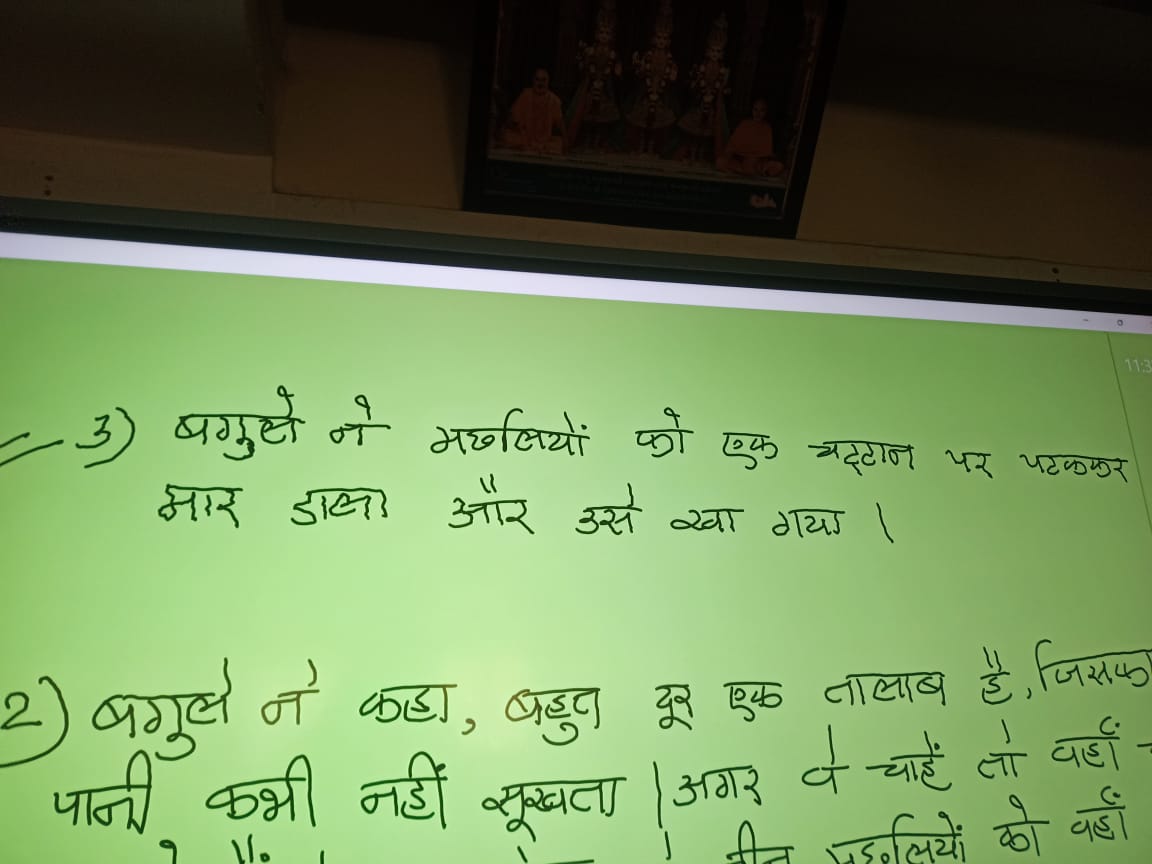 11:3
3) बगुले ने मछलियों को एक चट्टान पर पटककर
मार डाला और उसे खा गया ।
2) बगुले ने कहा, बहुत दूर एक तालाब है, जिसका
पानी कभी नहीं सूखता । अगर वे चाहें तो वहाँ
मछलियों को वहाँ